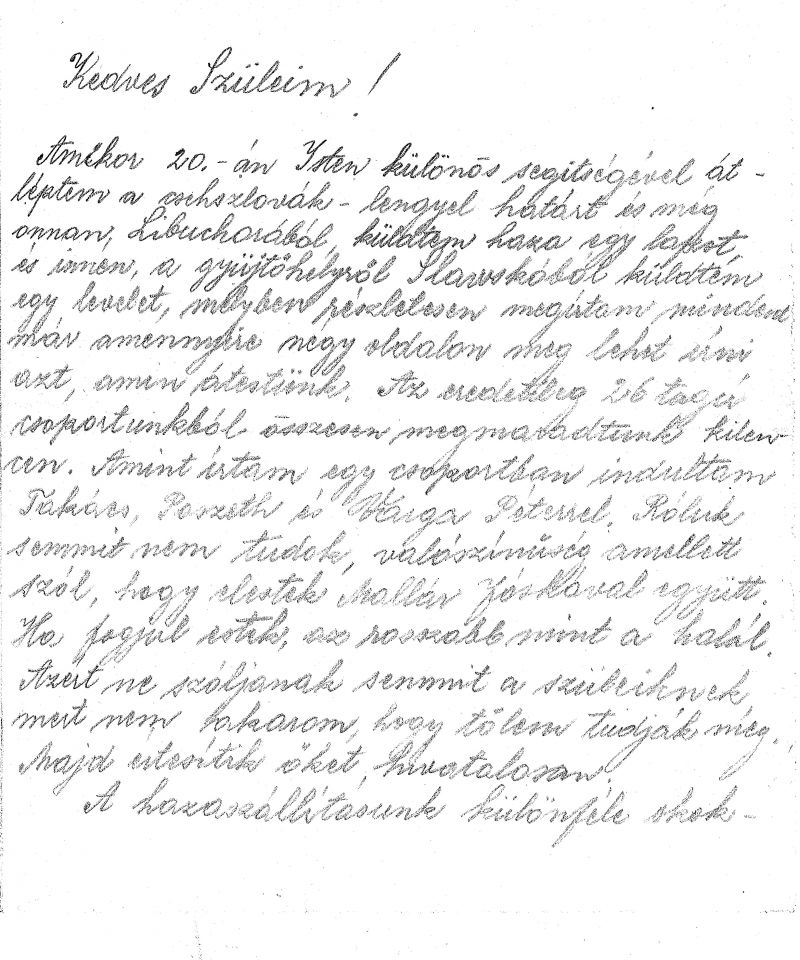 Kedves Szüleim!
Amikor 20.-án Isten különös segitségével át-
léptem a csehszlovák-lengyel határt és még
onnan, Libuchorából, küldtem haza egy lapot
és innen, a gyüjtőhelyről Slawskóból küldtem
egy levelet, melyben részletesen megírtam mindent
már amennyire négy oldalon meg lehet írni
azt, amin átestünk. Az eredetileg 26 tagú
csoportunkból összesen megmaradtunk kilen-
cen. Amint írtam egy csoportban indultam
Takács, Poszeth és Varga Péterrel. Róluk
semmit nem tudok, valószínűség amellett
szól, hogy elestek Mallár Jóskával együtt.
Ha fogjul estek, az rosszabb mint a halál.
Azért ne szóljanak semmit a szüleiknek
mert nem akarom, hogy tőlem tudják meg.
Majd értesítik őket, hivatalosan.
A hazaszállításunk különféle okok-